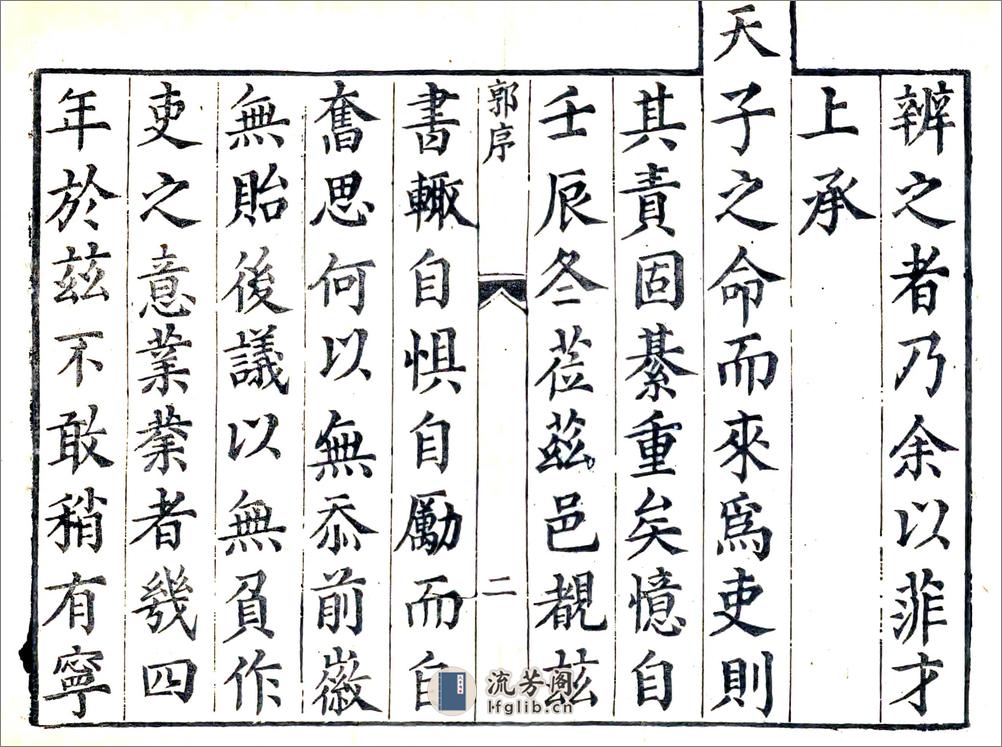 辨之者乃余以菲才
上承
天子之命而來為吏則
其責固綦重矣憶自
壬辰冬莅茲邑覩茲
郭序
二
書輙自惧自勵而自
奮思何以無忝前徽
無貽後議以無負作
吏之意業業者幾四
年於茲不敢稍有寧
流芳阁
lfglib.cn